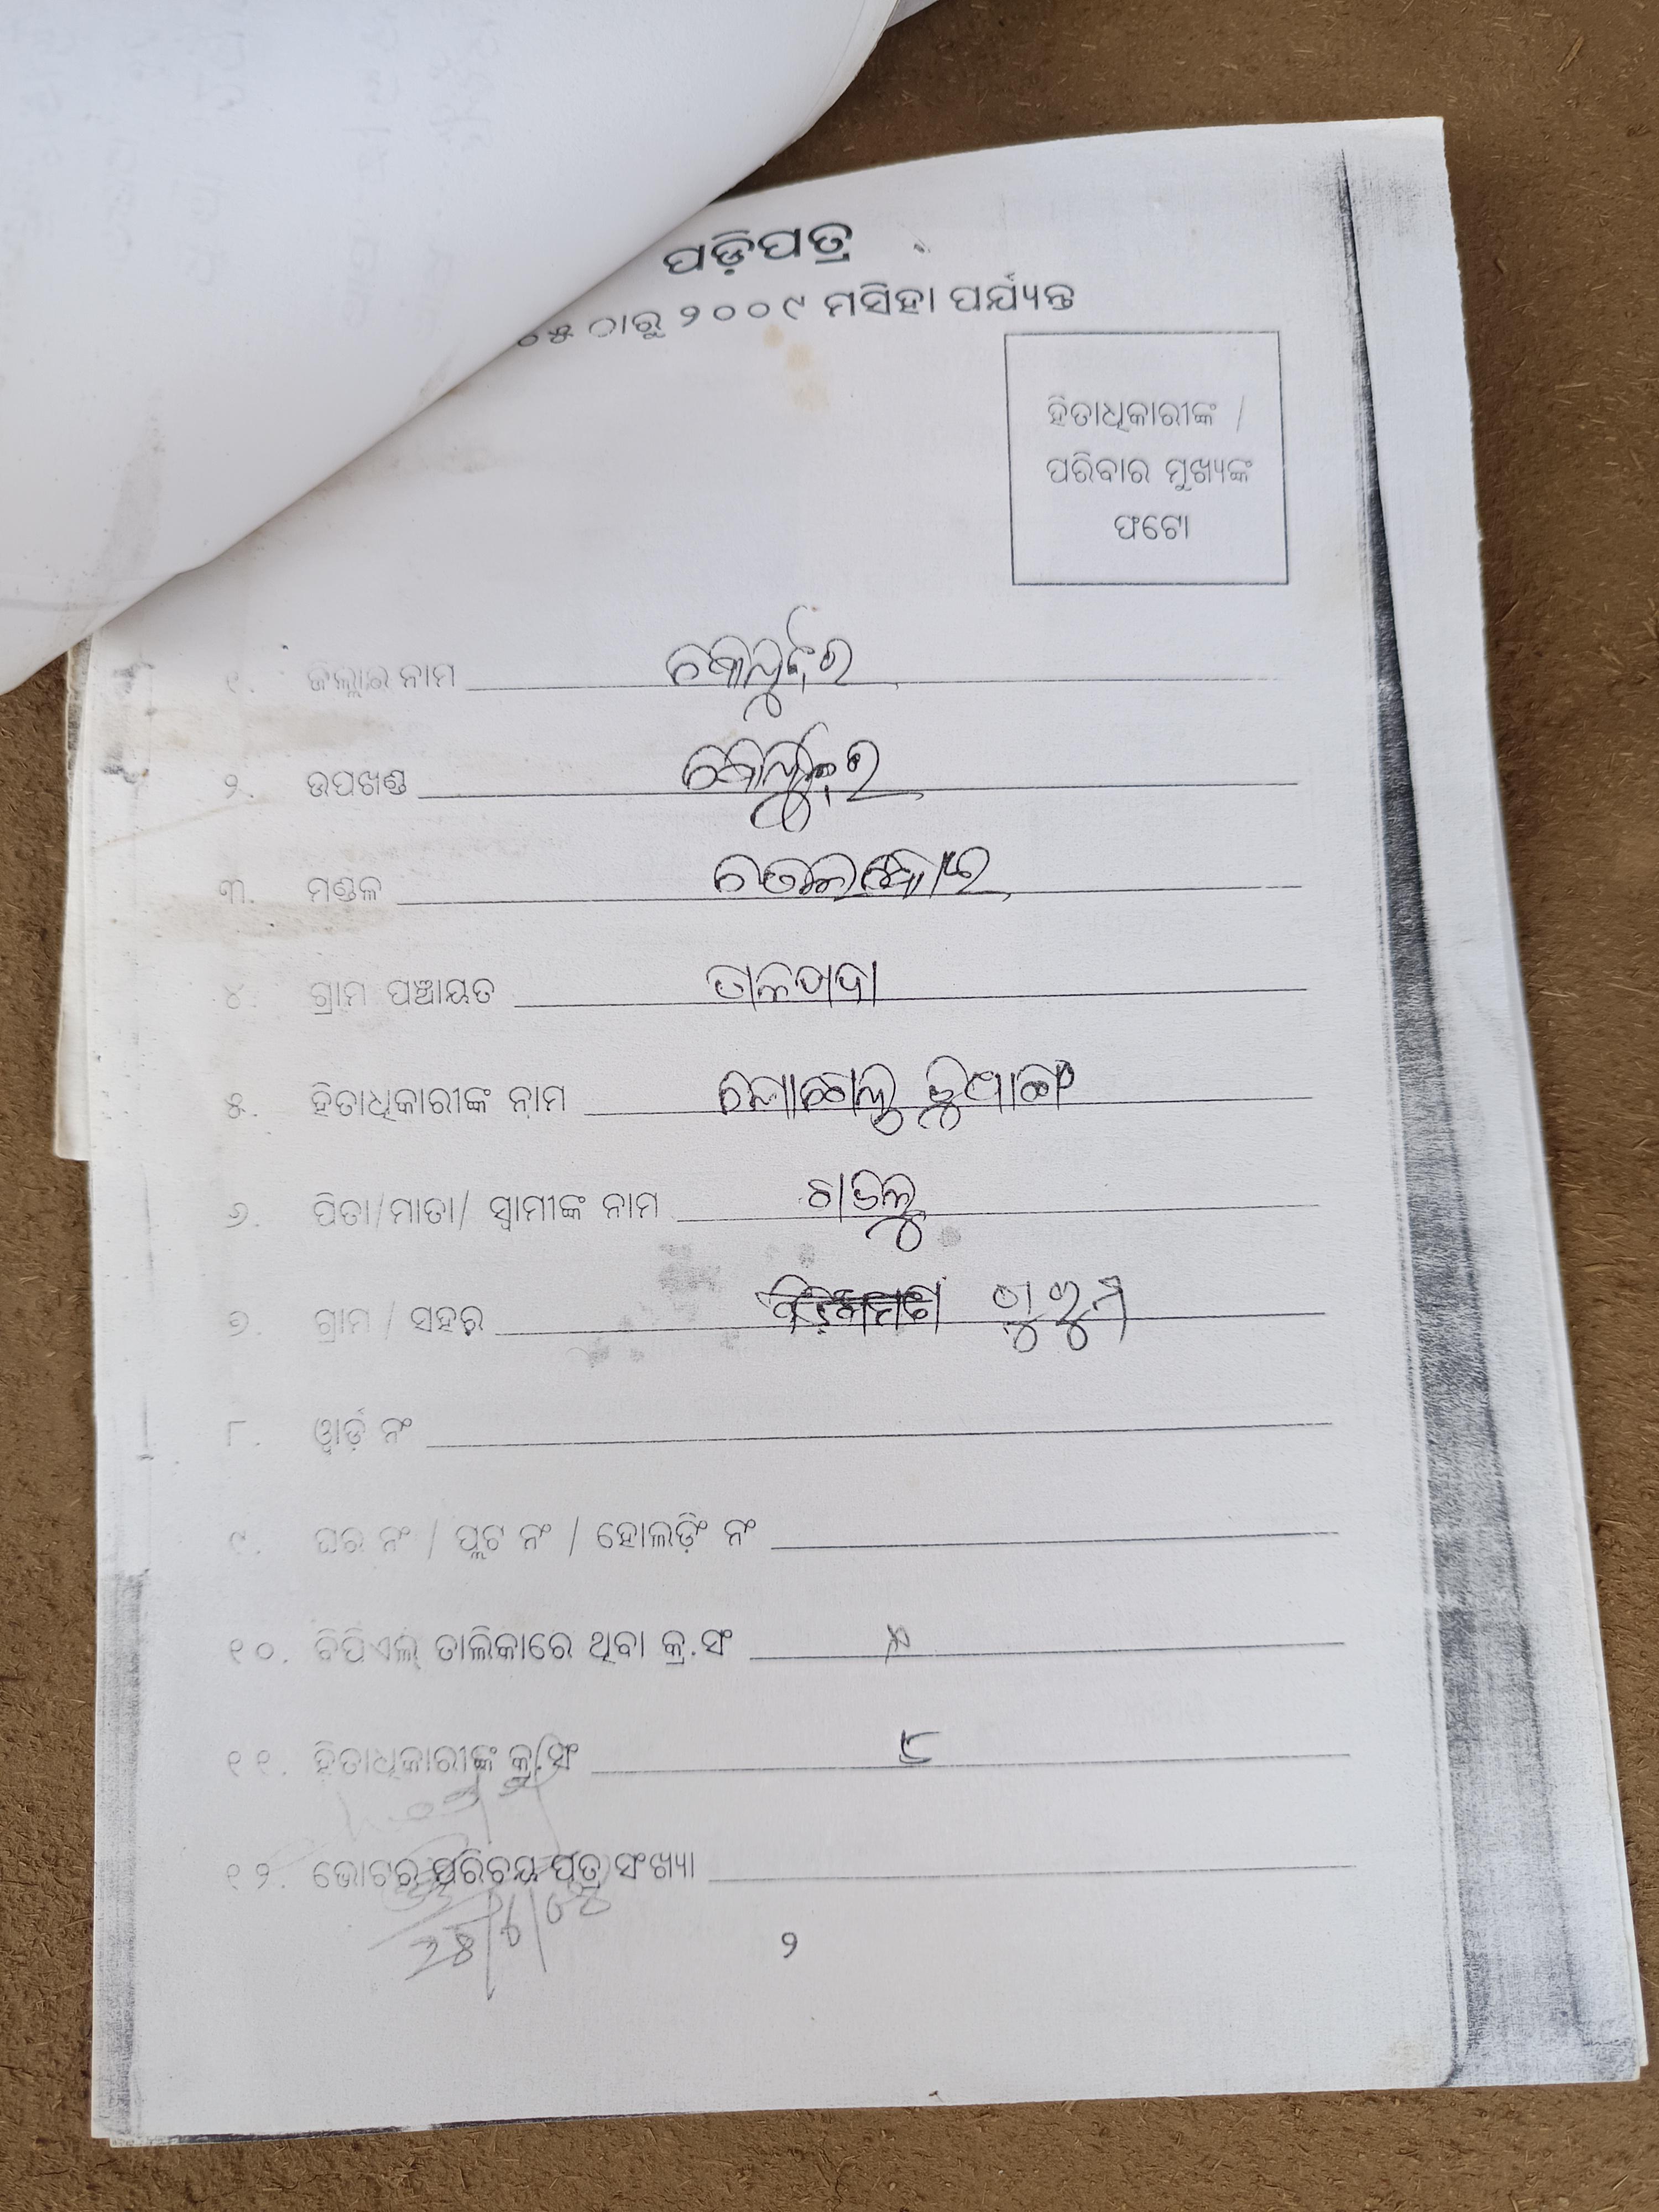 ପଡ଼ିପତ୍ର
ଠାରୁ ୨୦୦୯ ମସିହା ପର୍ଯ୍ୟନ୍ତ
ହିତାଧିକାରୀଙ୍କ /
ପରିବାର ମୁଖ୍ୟଙ୍କ
ଫଟୋ
୧. ଜିଲ୍ଲାର ନାମ କେନ୍ଦୁଝର
୨. ଉପଖଣ୍ଡ କେନ୍ଦୁଝର
୩. ମଣ୍ଡଳ ତେଲକୋଇ
୪. ଗ୍ରାମ ପଞ୍ଚାୟତ ତାଳପଦା
୫. ହିତାଧିକାରୀଙ୍କ ନାମ ଜୁଆଙ୍ଗ
୬. ପିତା/ମାତା/ ସ୍ୱାମୀଙ୍କ ନାମ
୭. ଗ୍ରାମ / ସହର
୮. ୱାର୍ଡ଼ ନଂ
୯. ଘର ନଂ / ପ୍ଲଟ ନଂ / ହୋଲଡ଼ିଂ ନଂ
୧୦. ବିପିଏଲ୍ ତାଲିକାରେ ଥିବା କ୍ର.ସଂ
୧୧. ହିତାଧିକାରୀଙ୍କ କ୍ର.ସଂ
୧୨. ଭୋଟର ପରିଚୟ ପତ୍ର ସଂଖ୍ୟା
୨